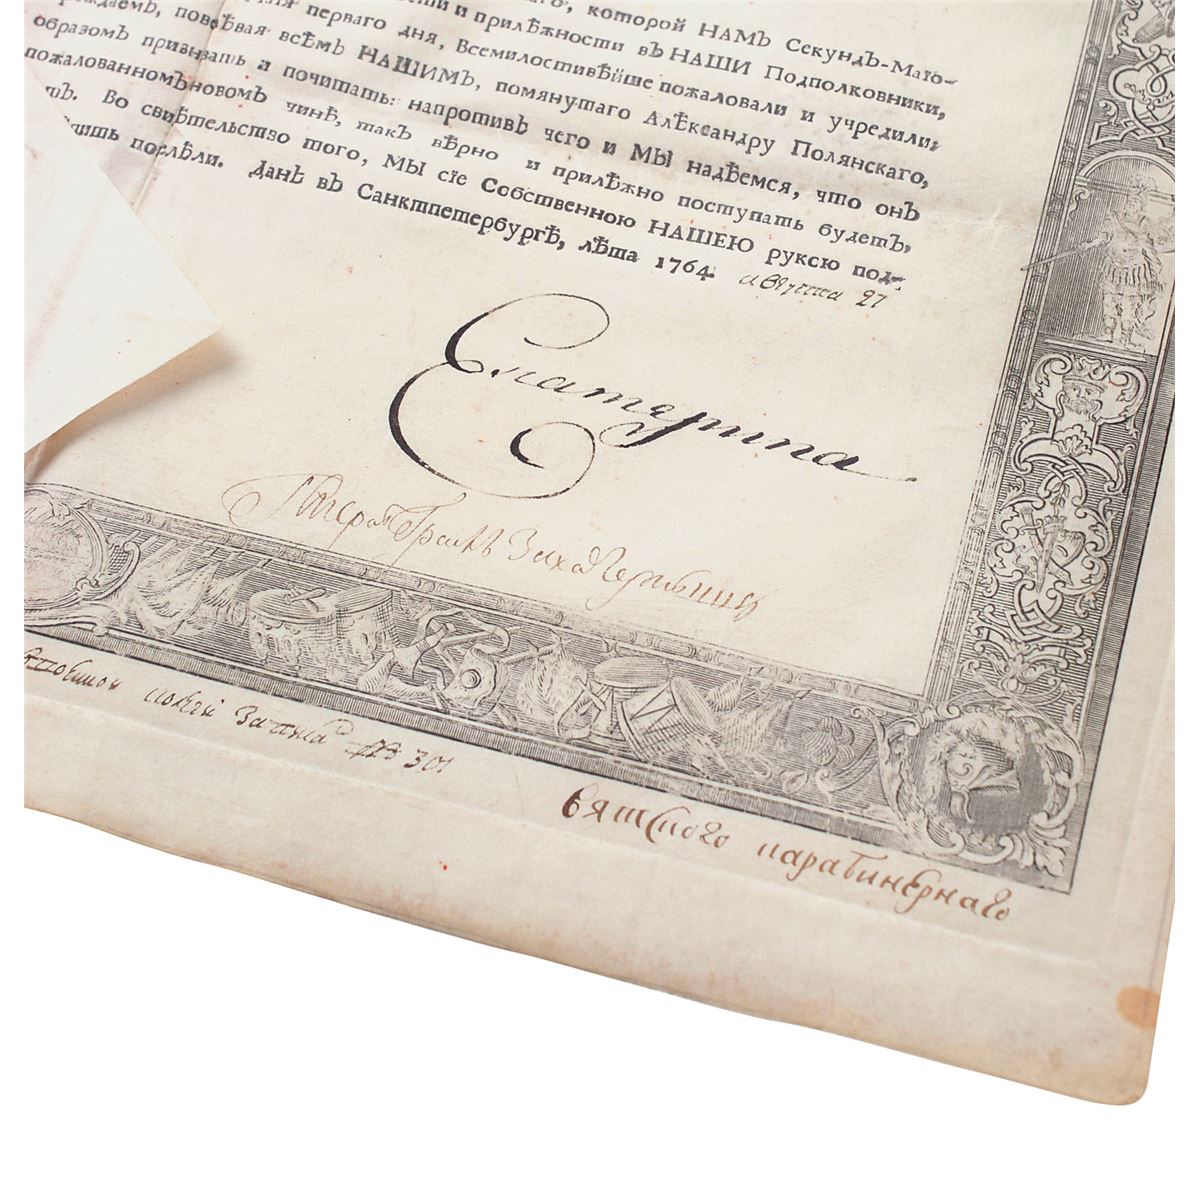 которой НАМЪ Секундъ-Маіо-
и прилѣжности въ НАШИ Подполковники,
перваго дня, Всемилостивѣйше пожаловали и учредили;
повелѣвая всѣмъ НАШИМЪ, помянутаго Алѣксандру Полянскаго,
образомъ признвать и почитать: напротивъ чего и МЫ надѣемся, что онъ
пожалованномъ новомъ чинѣ, такъ вѣрно и прилѣжно поступать будетъ,
Во свидѣтельство того, МЫ сіе Собственною НАШЕЮ рукою под-
Данъ въ Санктпетербургѣ, лѣта 1764. августа 27
Екатерина
Генералъ Графъ Захаръ Чернышевъ
301
вятского карабинернаго